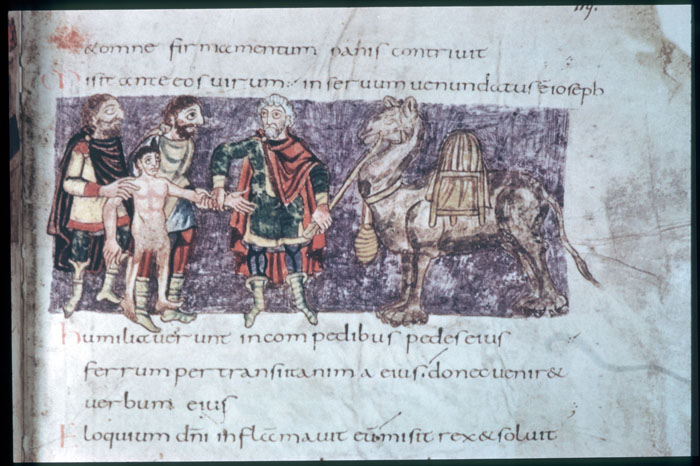 119.
& omne firmamentum panis contrivit
Misit ante eos virum: in servum venundatus ē ioseph
humiliaverunt in compedibus pedes eius
ferrum pertransiit anima eius, donec venir&
verbum eius
Eloquium dn̄i inflammavit eū misit rex & solvit